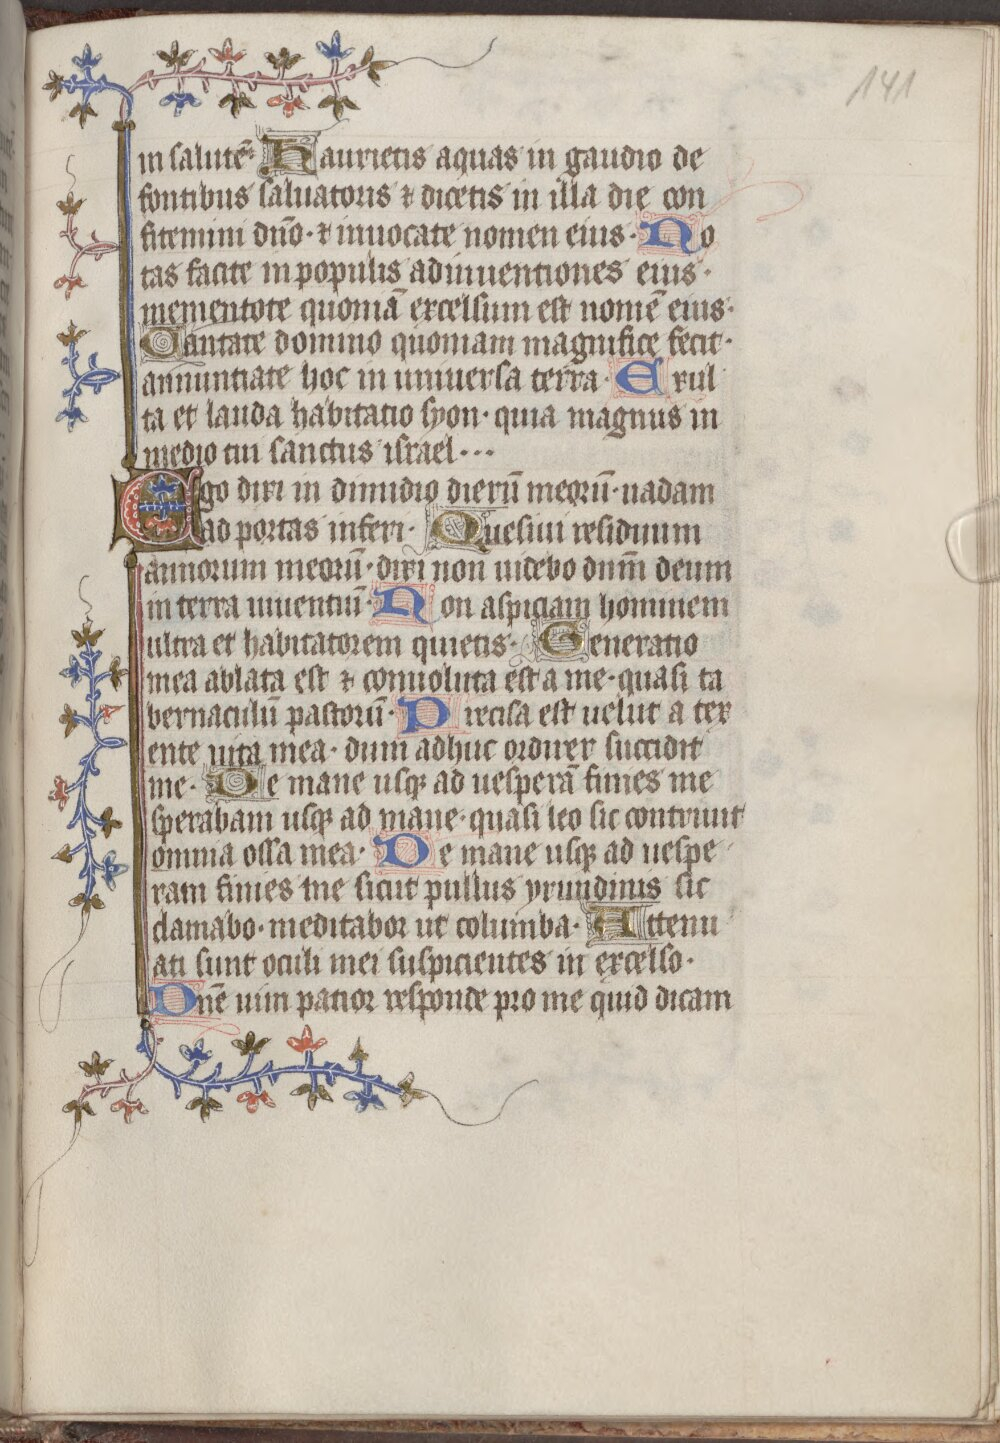 141
in salutē· Haurietis aquas in gaudio de
fontibus saluatoris ⁊ dicetis in illa die con
fitemini dn̄o· ⁊ inuocate nomen eius· No
tas facite in populis adinuentiones eius·
mementote quoniā excelsum est nomē eius·
Cantate domino quoniam magnifice fecit·
annuntiate hoc in uniuersa terra· Exul
ta et lauda habitatio syon· quia magnus in
medio tui sanctus israel···
Ego dixi in dimidio dierū meorū· uadam
ad portas inferi· Quesiui residuum
annorum meorū· dixi non uidebo dnm̄ deum
in terra uiuentiū· Non aspiciam hominem
ultra et habitatorem quietis· Generatio
mea ablata est ⁊ conuoluta est a me· quasi ta
bernaculū pastorū· Precisa est uelut a tex
ente uita mea· dum adhuc ordirer succidit
me· De mane usqꝫ ad uesperā finies me
sperabam usqꝫ ad mane· quasi leo sic contriuit
omnia ossa mea· De mane usqꝫ ad uespe
ram finies me sicut pullus yrundinis sic
clamabo· meditabor ut columba· Attenu
ati sunt oculi mei suspicientes in excelso·
Dnē uim patior responde pro me quid dicam